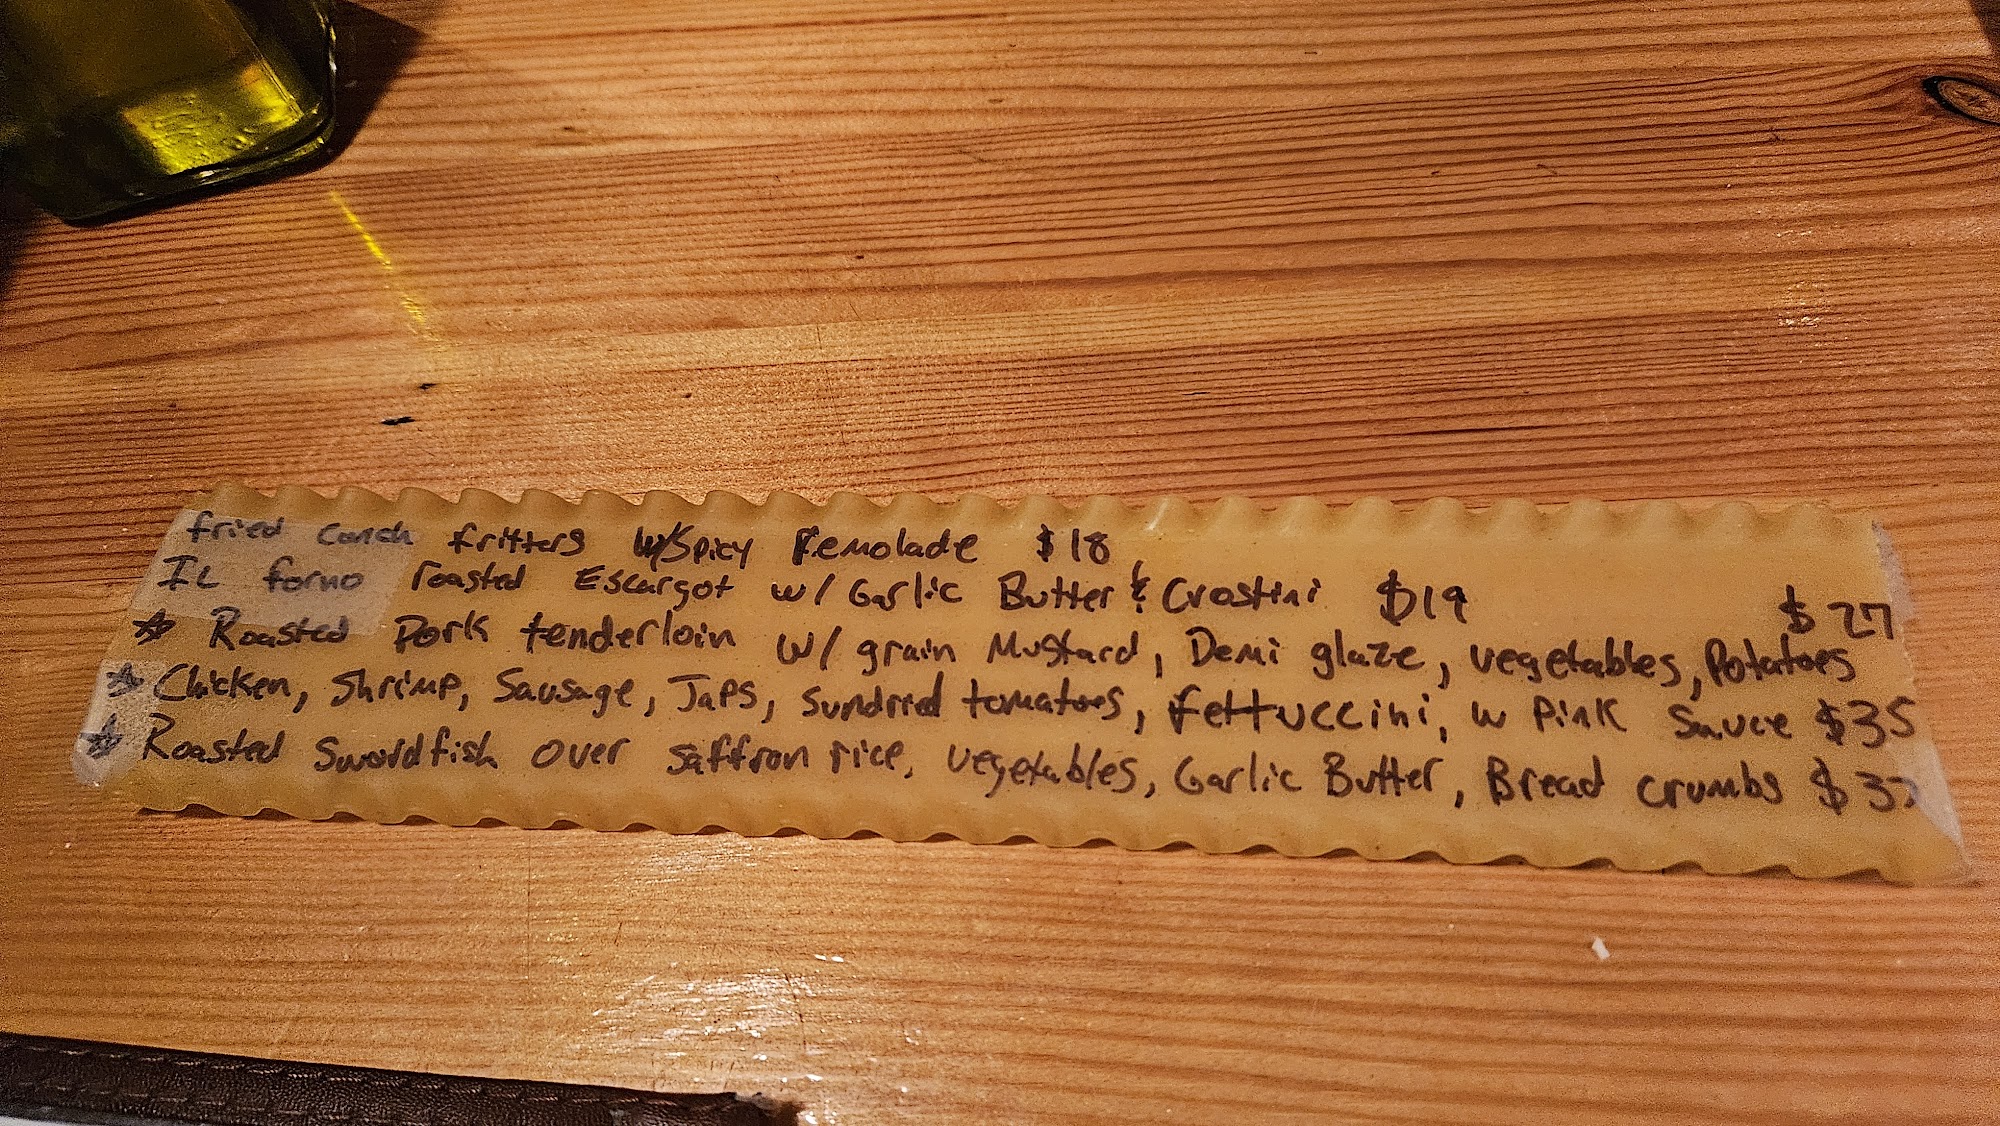 fried conch fritters w/Spicy Remolade $18
IL forno roasted Escargot w/ Garlic Butter & Crostini $19
☆ Roasted Pork tenderloin w/ grain Mustard, Demi glaze, vegetables, Potatoes $27
☆ Chicken, Shrimp, Sausage, Japs, Sundried tomatoes, fettuccini, w Pink Sauce $35
☆ Roasted Swordfish over saffron rice, vegetables, Garlic Butter, Bread crumbs